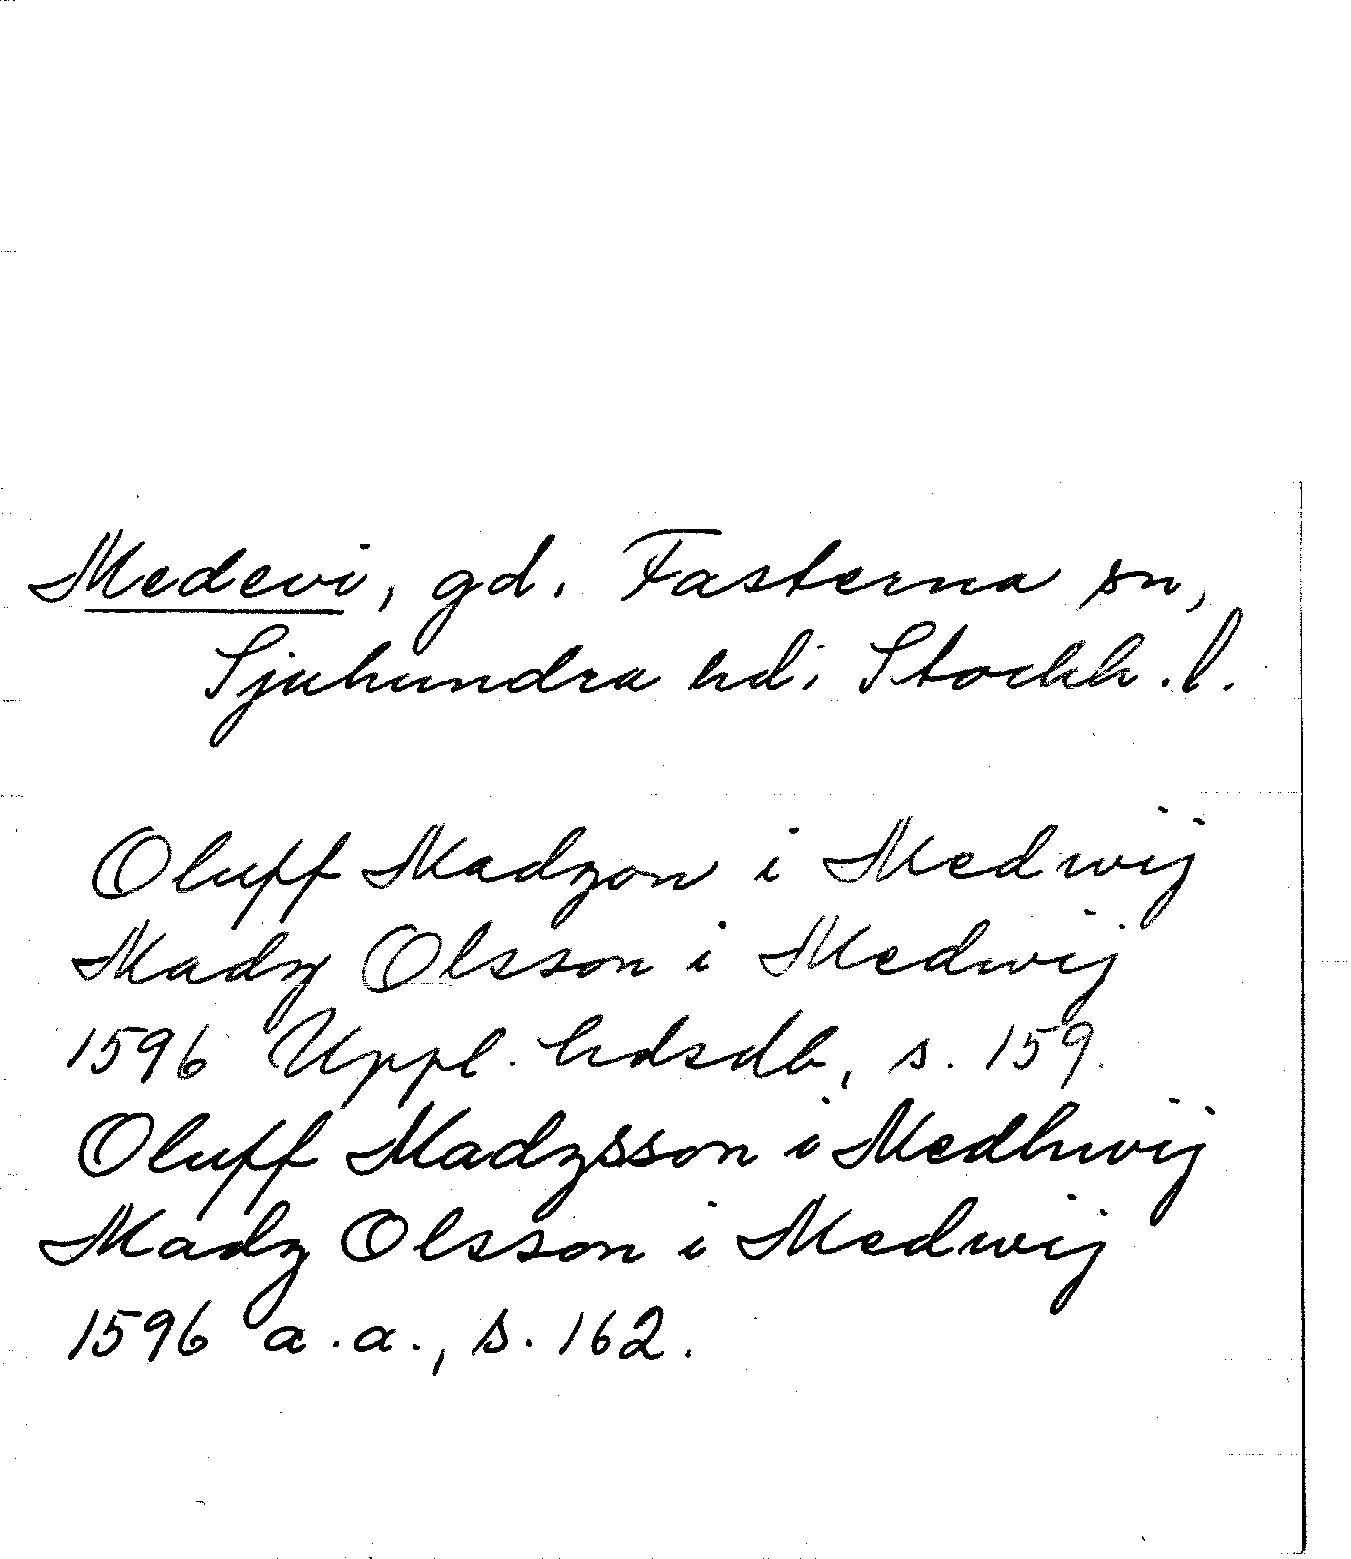 Medevi, gd. Fasterna sn,
Sjuhundra hd; Stockh. l.
Oluff Madzon i Medwij
Madz Olsson i Medwij
1596 Uppl. hdsdb, s. 159.
Oluff Madzsson i Medhwij
Madz Olsson i Medwij
1596 a.a., s. 162.